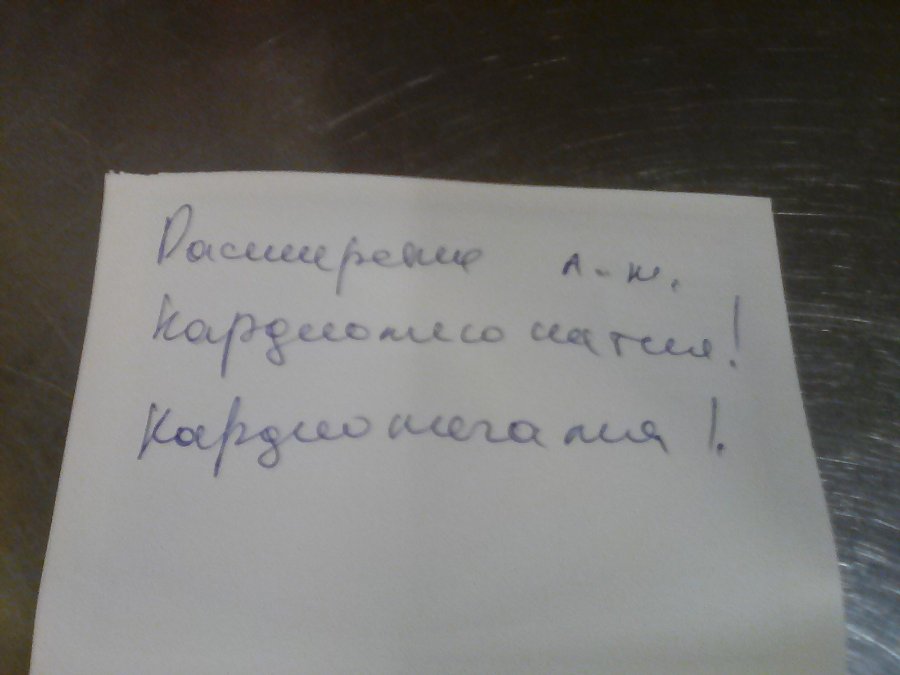 Расширение л.ж.
Кардиомиопатия!
Кардиомегалия!